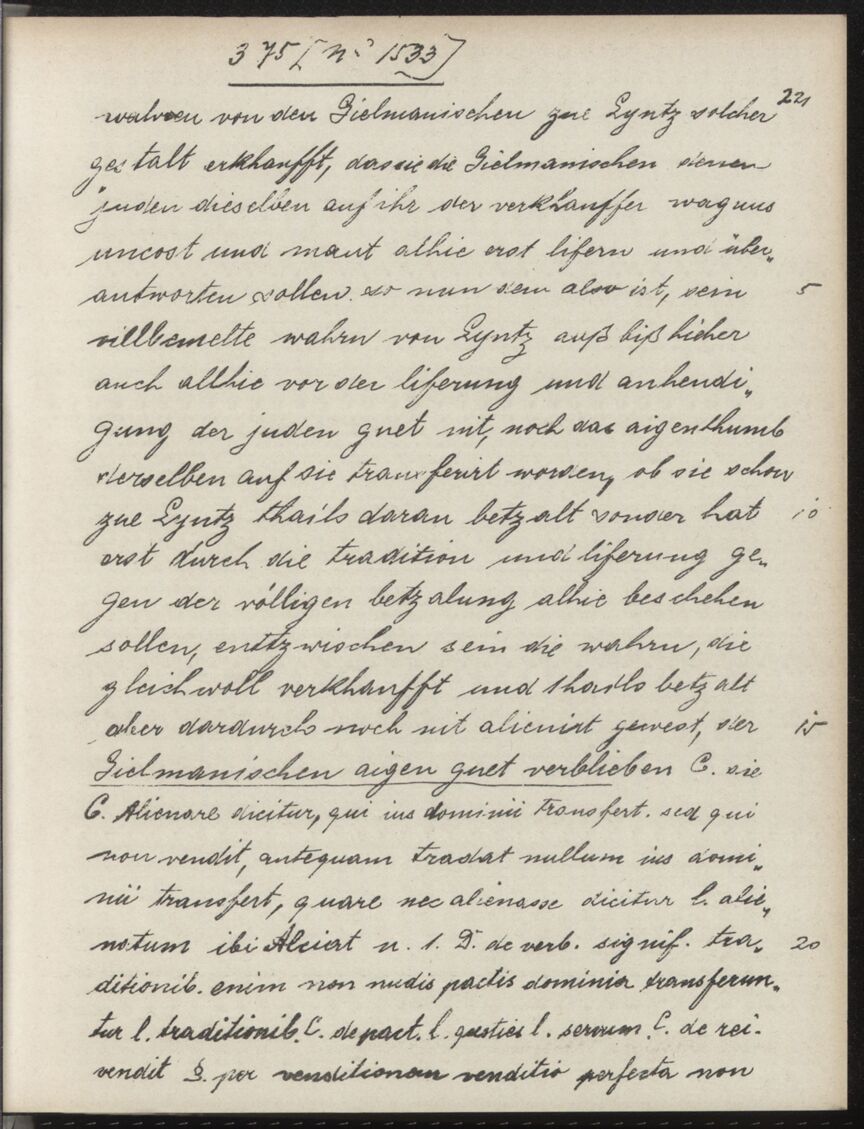 375 [N° 1533]
221
wahren von den Gielmanischen zue Lyntz solcher
gestalt erkhaufft, das sie die Gielmanischen denen
juden dieselben auf ihr der verkhauffer wagnus
uncost und maut alhie erst lifern und über„
antworten sollen. so nun dem also ist, sein 5
villbemelte wahrn von Lyntz auß biß hieher
auch allhie vor der liferung und anhendi„
gung der juden guet nit, noch das aigenthumb
derselben auf sie transferirt worden, ob sie schon
zue Lyntz thails daran betzalt sonder hat 10
erst durch die tradition und liferung ge„
gen der völligen betzalung alhie beschehen
sollen, enttzwischen sein die wahrn, die
gleichwoll verkhaufft und thails betzalt
aber dardurch noch nit alienirt gewest, der 15
Gielmanischen aigen guet verblieben C. sie
C. Alienare dicitur, qui ius dominii transfert. sed qui
non vendit, antequam tradat nullum ius domi„
nii transfert, quare nec alienasse dicitur l. alie„
natum ibi Alciat n. 1. D. de verb. signif. tra„ 20
ditionib. enim non nudis pactis dominia transferun„
tur l. traditionib. C. de pact. l. quoties l. servum C. de rei.
vendit §. per venditionem venditio perfecta non